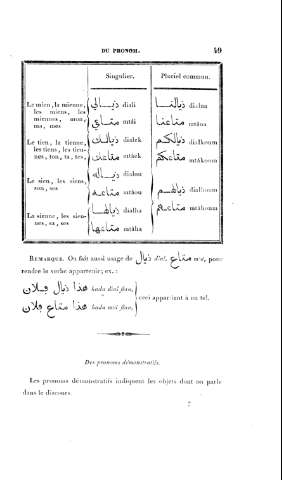 DU PRONOM. 49
Singulier. Pluriel commun.
Le mien, la mienne, les miens, les miennes, mon, ma, mes
ديالي diali ديالنا dialna
متاعي mtâi متاعنا mtâna
Le tien, la tienne, les tiens, les tiennes, ton, ta, tes
ديالك dialek ديالكم dialkoum
متاعك mtâek متاعكم mtâkoum
Le sien, les siens, son, ses
دياله dialou
متاعه mtâou ديالهم dialhoum
La sienne, les siennes, sa, ses
ديالها dialha متاعهم mtâhoum
متاعها mtâha
REMARQUE. On fait aussi usage de ديال dial, متاع mtâ, pour
rendre le verbe appartenir; ex.:
هذا ديال فلان hada dial flan,
هذا متاع فلان hada mtâ flan,
ceci appartient à un tel.
Des pronoms démonstratifs.
Les pronoms démonstratifs indiquent les objets dont on parle
dans le discours.